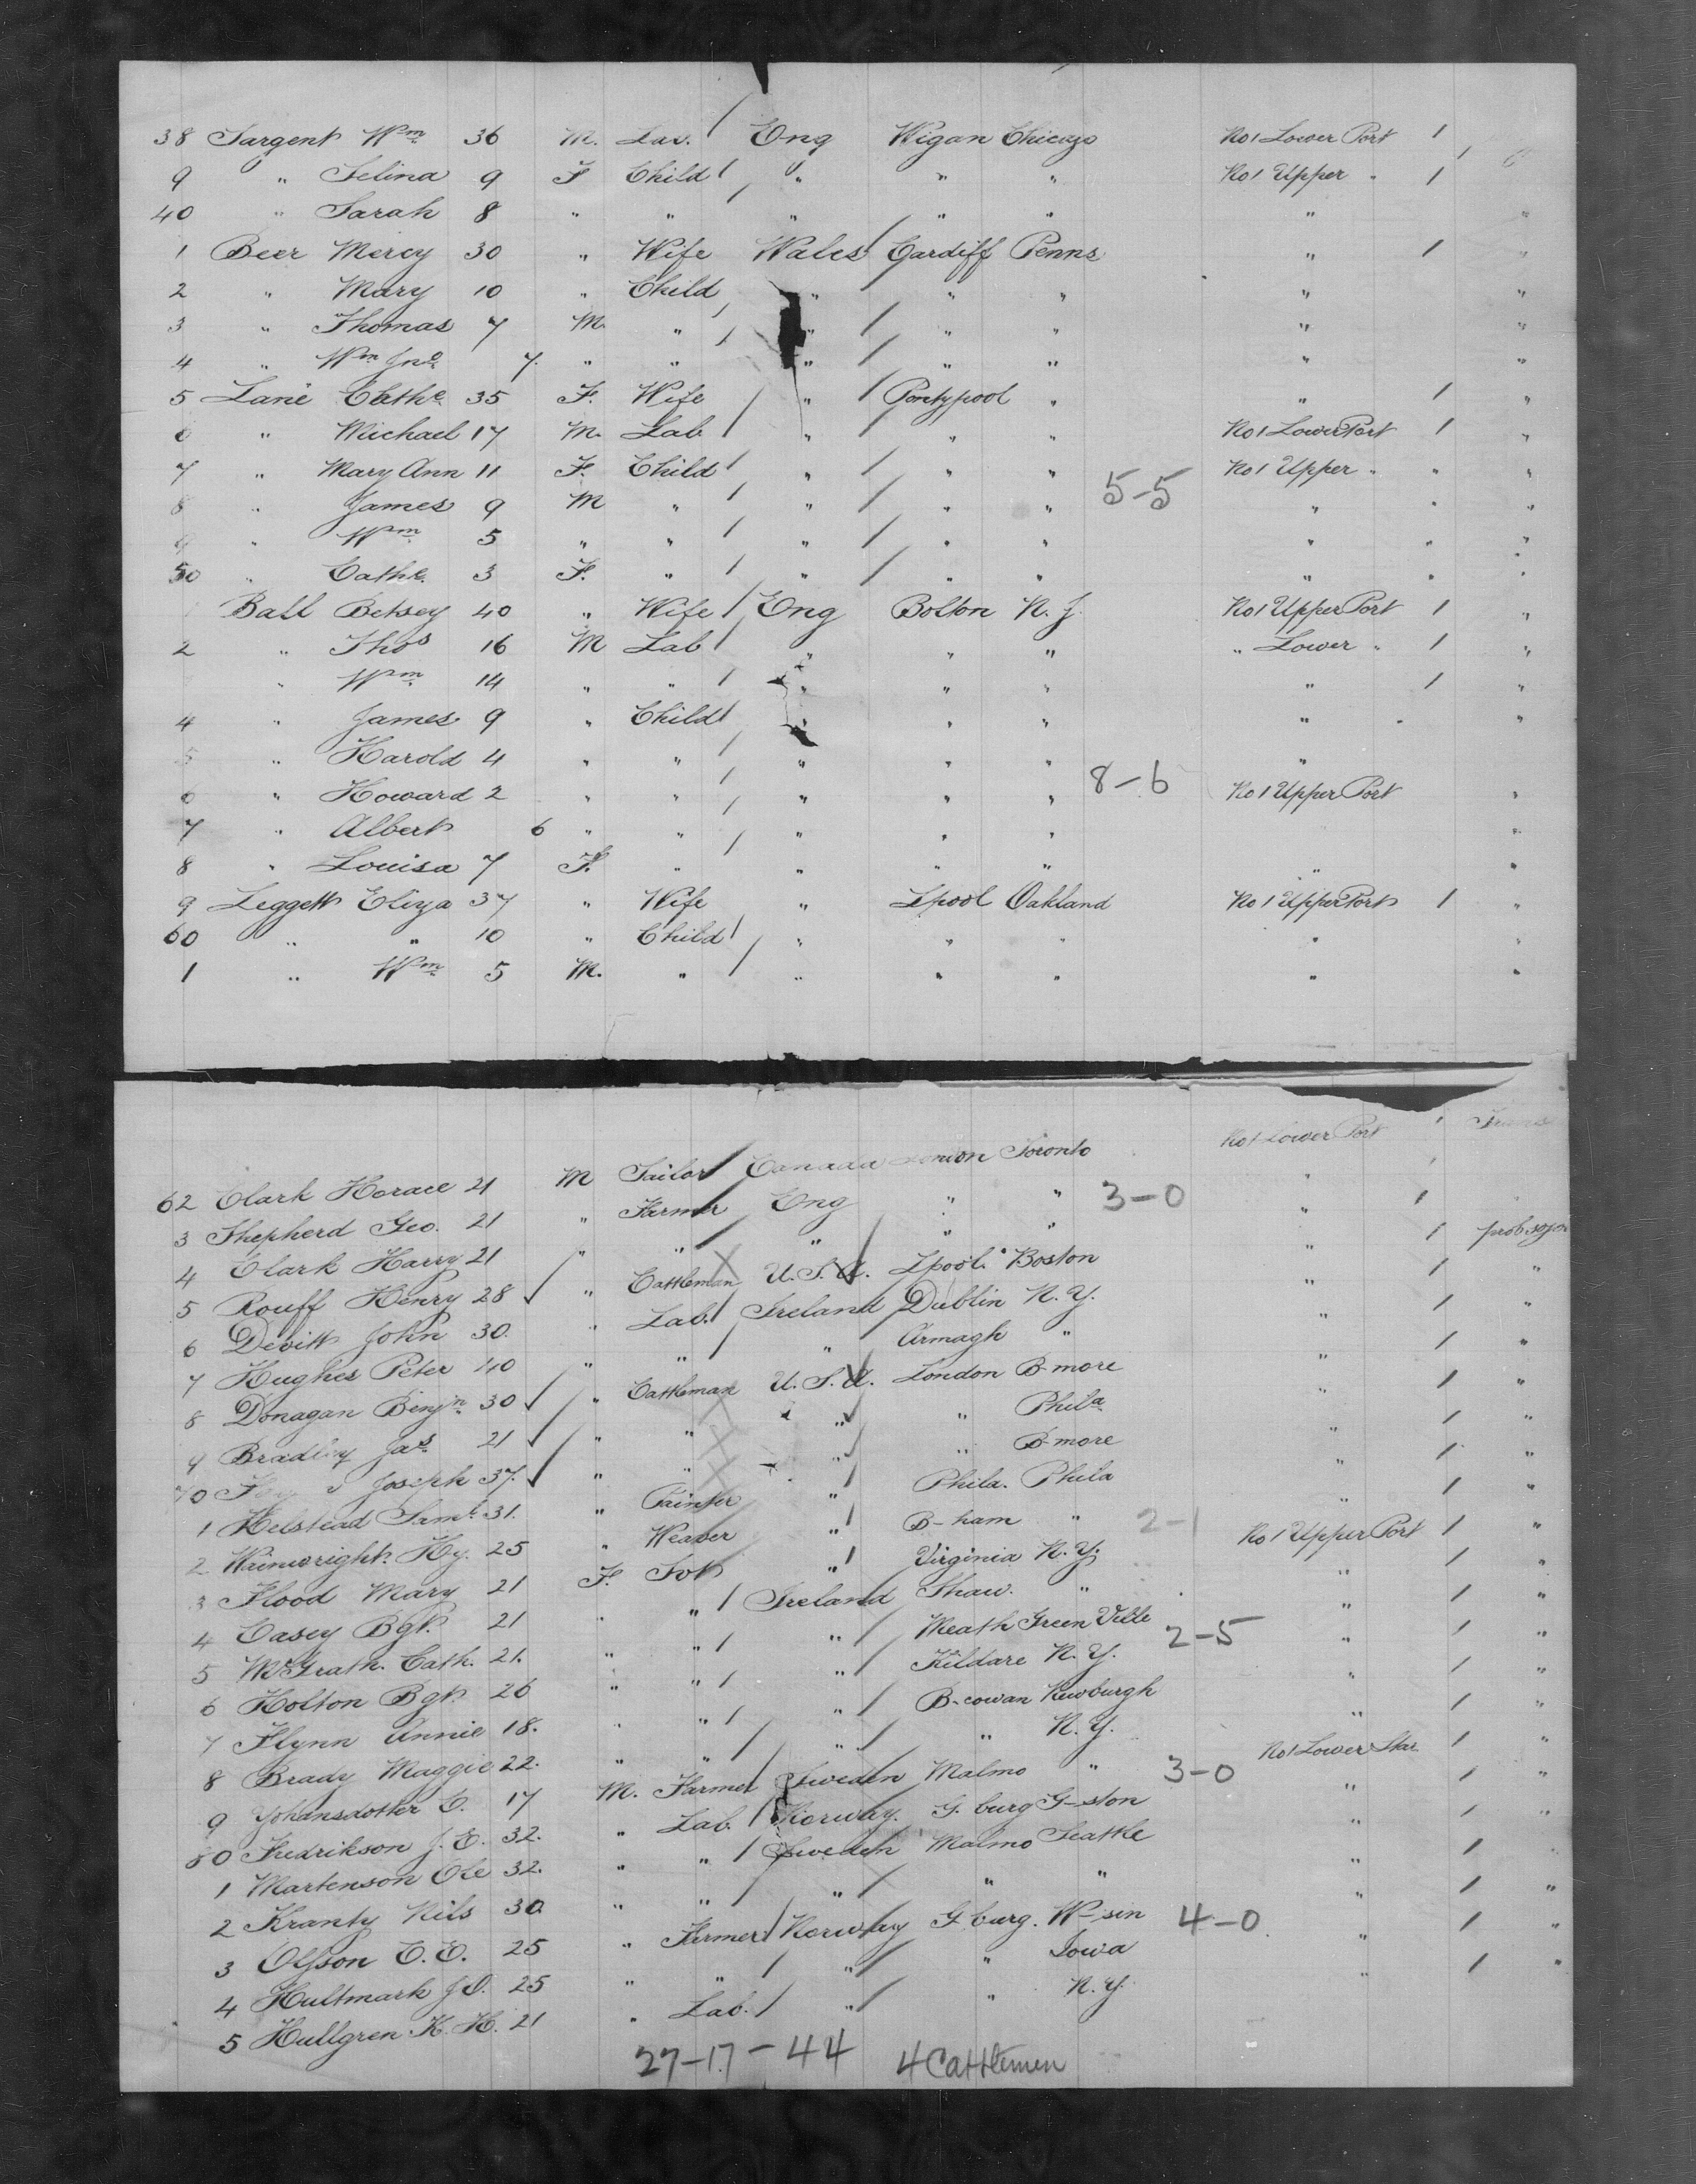 38 Sargent Wm 36 M. Lab. Eng Wigan Chicago No 1 Lower Port 1
9 " Selina 9 F Child " " " No 1 Upper " 1
40 " Sarah 8 " " " " " " "
1 Beer Mercy 30 " Wife Wales Cardiff Penna " 1 "
2 " Mary 10 " Child " " " " "
3 " Thomas 7 M " " " " " "
4 " Wm Jno 7. " " " " " " "
5 Lane Cathe 35 F. Wife " Pontypool " " 1 "
6 " Michael 17 M. Lab " " " No 1 Lower Port 1 "
7 " Mary Ann 11 F. Child " " " No 1 Upper " " "
8 " James 9 M " " " " 5-5 " " "
9 " Wm 5 " " " " " " " "
50 " Cathe. 3 F. " " " " " " "
Ball Betsey 40 " Wife Eng Bolton N. J. No 1 Upper Port 1 "
2 " Thos 16 M Lab " " " " Lower " 1 "
" Wm 14 " " " " " " 1 "
4 " James 9 " Child " " " " " "
5 " Harold 4 " " " " " "
6 " Howard 2 " " " " " 8-6 No 1 Upper Port "
7 " Albert 6 " " " " " "
8 " Louisa 7 F. " " " " " "
9 Leggett Eliza 37 " Wife " Lpool Oakland No 1 Upper Port 1 "
60 " " 10 " Child " " " " "
1 " Wm 5 M. " " " " " "
62 Clark Horace 21 M Tailor Canada London Toronto No 1 Lower Port 1
3 Shepherd Geo. 21 " Farmer Eng " " 3-0 "
4 Clark Harry 21 " " " " " " 1
5 Rouff Henry 28 " Cattleman U.S.A. Lpool Boston " 1
6 Devitt John 30. " Lab. Ireland Dublin N. Y. " 1 "
7 Hughes Peter 40 " " " Armagh " " 1 "
8 Donagan Benjn 30 " Cattleman U.S.A. London B-more " 1 "
9 Bradley Jas 21 " " " " Phila " 1 "
70 Joseph 37. " " " " B-more " 1 "
1 Helstead Saml 31. " Painter " Phila. Phila " 1 "
2 Wainwright. Hy. 25 " Weaver " B-ham " 2-1 " 1 "
3 Flood Mary 21 F. " Virginia N. Y. No 1 Upper Port 1 "
4 Casey Bgt. 21 " " Ireland Shaw. " " 1 "
5 McGrath. Cath. 21. " " " Meath Green Ville 2-5 " 1 "
6 Holton Bgt 26 " " " Kildare N. Y. " 1 "
7 Flynn Annie 18. " " " B-cowan Newburgh " 1 "
8 Brady Maggie 22. " " " " N. Y. " 1 "
9 Johansdotter C. 17 " " Sweden Malmo " 3-0 No 1 Lower 1 "
80 Fredrikson J. E. 32. M. Farmer Norway. G. burg G-ston " 1 "
1 Martenson Ole 32. " Lab. Sweden Malmo Seattle " 1 "
2 Krantz Nils 30 " " " " " " 1 "
3 Olsson C. E. 25 " " Norway G burg. W-sin 4-0 " 1 "
4 Hultmark J O. 25 " Farmer " " Iowa " 1 "
5 Hullgren K. H. 21 " Lab. " " N. Y. " 1 "
27-17-44 4 Cattlemen